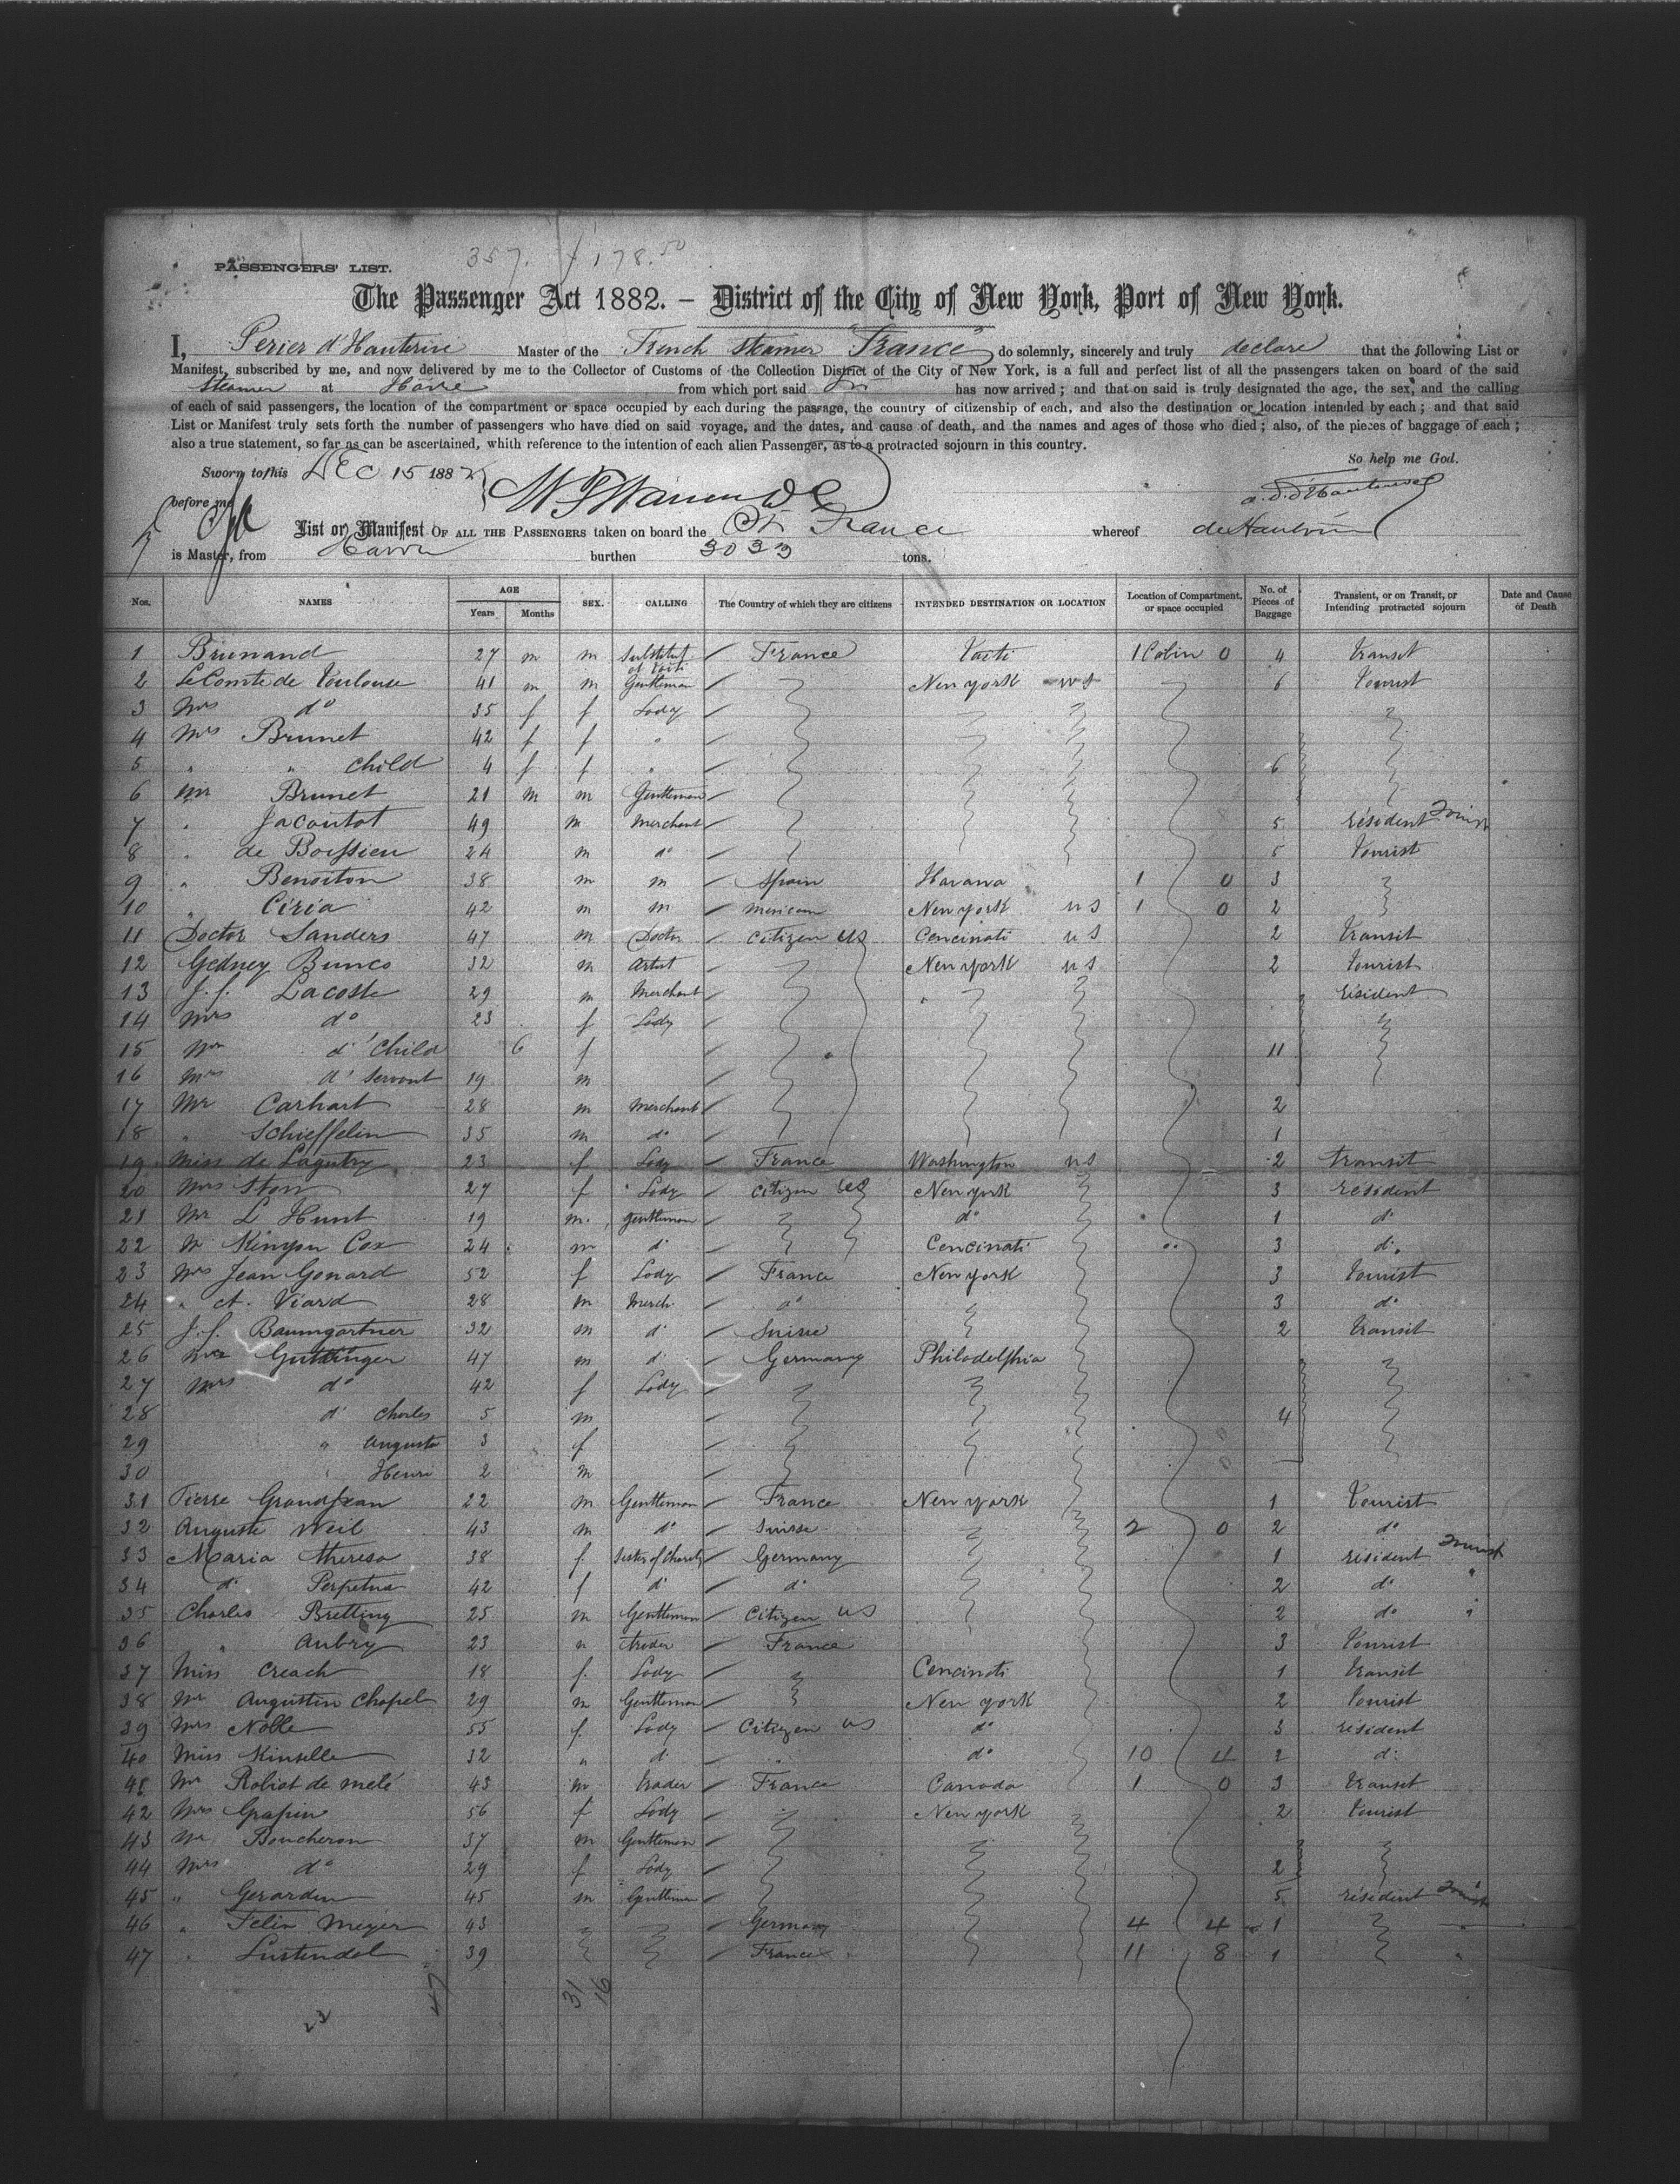 357. 178.50
PASSENGERS' LIST.
The Passenger Act 1882. — District of the City of New York, Port of New York.
I, Perier d'Hauterive Master of the French Steamer "France" do solemnly, sincerely and truly declare that the following List or
Manifest, subscribed by me, and now delivered by me to the Collector of Customs of the Collection District of the City of New York, is a full and perfect list of all the passengers taken on board of the said
Steamer at Havre from which port said has now arrived; and that on said is truly designated the age, the sex, and the calling
of each of said passengers, the location of the compartment or space occupied by each during the passage, the country of citizenship of each, and also the destination or location intended by each; and that said
List or Manifest truly sets forth the number of passengers who have died on said voyage, and the dates, and cause of death, and the names and ages of those who died; also, of the pieces of baggage of each;
also a true statement, so far as can be ascertained, whith reference to the intention of each alien Passenger, as to a protracted sojourn in this country.
So help me God.
Sworn to this DEC 15 1882
before me
List or Manifest OF ALL THE PASSENGERS taken on board the St. France whereof
is Master, from Havre burthen 3033 tons.
Nos. NAMES AGE Years Months SEX. CALLING The Country of which they are citizens INTENDED DESTINATION OR LOCATION Location of Compartment, or space occupied No. of Pieces of Baggage Transient, or on Transit, or Intending protracted sojourn Date and Cause of Death
1 Brunand 27 m m France 1 Cabin 0 4 transit
2 Le Comte de Toulouse 41 m m Gentleman New york US 6 tourist
3 Mrs do 35 f f Lady
4 Mrs Brunet 42 f f "
5 " " child 4 f f " 6
6 Mr Brunet 21 m m Gentleman
7 " Jacoutot 49 m Merchant 5 résident
8 " de Boissieu 24 m do 5 tourist
9 " Benoiton 38 m m Spain Havana 1 0 3
10 " Ciria 42 m m Mexican New york US 1 0 2
11 Doctor Sanders 47 m Doctor citizen US Cencinati US 2 transit
12 Gedney Bunco 32 m Artist New york US 2 tourist
13 J. J. Lacoste 29 m Merchant " résident
14 Mrs do 23 f Lady
15 do Child 6 f 11
16 Mrs do Servant 19 m
17 Mr Carhart 28 m merchant 2
18 " Schieffelin 35 m do 1
19 Miss de Lagutry 23 f Lady France Washington US 2 transit
20 Mrs Storr 27 f Lady citizen US New york 3 résident
21 Mr L Hunt 19 m. gentleman do 1 do
22 Kenyon Cox 24 m do Cencinati 3 do
23 Mrs Jean Gonard 52 f Lady France New york 3 tourist
24 " A. Viard 28 m Merch. do 3 do
25 J. J. Baumgartner 32 m do Suisse 2 transit
26 Guttinger 47 m do Germany Philadelphia
27 Mrs do 42 f Lady
28 do Charles 5 m 4
29 " Augusta 3 f
30 " Henri 2 m
31 Pierre Grandjean 22 m Gentleman France New york 1 tourist
32 Auguste Weil 43 m do Suisse 2 0 2 do
33 Maria Theresa 38 f. Sister of Charity Germany 1 résident
34 do Perpetua 42 f do do 2 do
35 Charles Bretting 25 m Gentleman Citizen US 2 do
36 " Aubry 23 trader France 3 tourist
37 Miss Creach 18 f. Lady Cencinati 1 transit
38 Mr Augustin Chapel 29 m Gentleman New york 2 tourist
39 Mrs Noble 55 f. Lady Citizen US do 3 résident
40 Miss Kinselle 32 " do " do 10 4 2 do
41 Mr Robiot de melé 43 m trader France Canada 1 0 3 transit
42 Mrs Grapin 56 f Lady New york 2 tourist
43 Mr Boucheron 37 m Gentleman
44 Mrs do 29 f Lady 2
45 " Gerardin 45 m Gentleman 5 résident
46 " Felix Meyer 43 Germany 4 4 1
47 " Lustendel 39 France 11 8 1
47 31 16
23